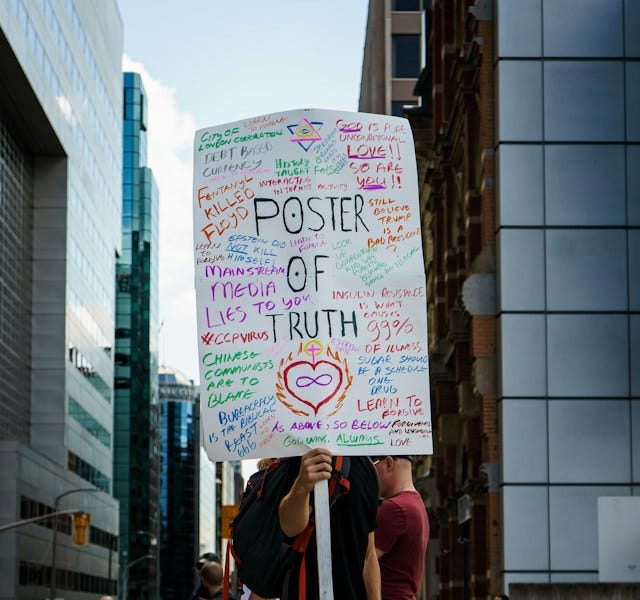 CITY OF
LONDON CORPORATION
LEARN
TO FORGIVE
DEBT BASED
CURRENCY
HISTORY
TAUGHT FALSE
INTERACTIVE
INTERNET ACTIVITY
GOD IS PURE
UNCONDITIONAL
LOVE!!
SO ARE
YOU!!
FENTANYL
KILLED
FLOYD
POSTER
OF
TRUTH
STILL
BELIEVE
TRUMP
IS A
BAD PRESIDENT
?
LEARN
TO
FORGIVE
EPSTEIN DID
NOT KILL
HIMSELF!
LEARN TO
FORGIVE
LOOK
UP
MAINSTREAM
MEDIA
LIES TO YOU
#CCPVIRUS
CHINESE
COMMUNISTS
ARE TO
BLAME
INSULIN RESISTANCE
IS WHAT
CAUSES
99%
OF ILLNESS
SUGAR SHOULD
BE A SCHEDULE
ONE
DRUG
BUREAUCRACY
IS THE BIBLICAL
BEAST
666
LEARN TO
FORGIVE
AS ABOVE, SO BELOW
GOD WINS. ALWAYS
FORGIVENESS
LOVE